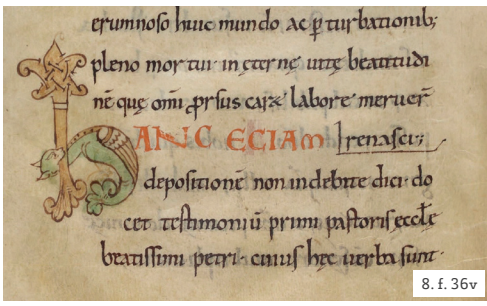 erumnoso huic mundo ac ꝑturbationib;
pleno mortui in ęternę uitę beatitudi
nē quę omī ꝓrsus caret labore meruer̄
HANC ECIAM renasci;
depositionē non indebite dici do
cet testimoniū primi pastoris eccłę
beatissimi petri. cuius hęc uerba sunt.
8. f. 36v